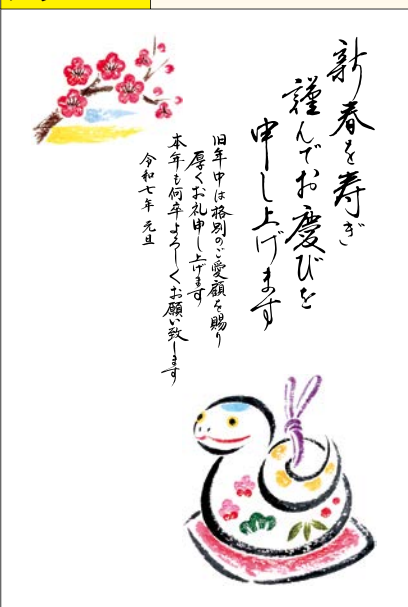 新春を寿ぎ
謹んでお慶びを
申し上げます
旧年中は格別のご愛顧を賜り
厚くお礼申し上げます
本年も何卒よろしくお願い致します
令和七年 元旦